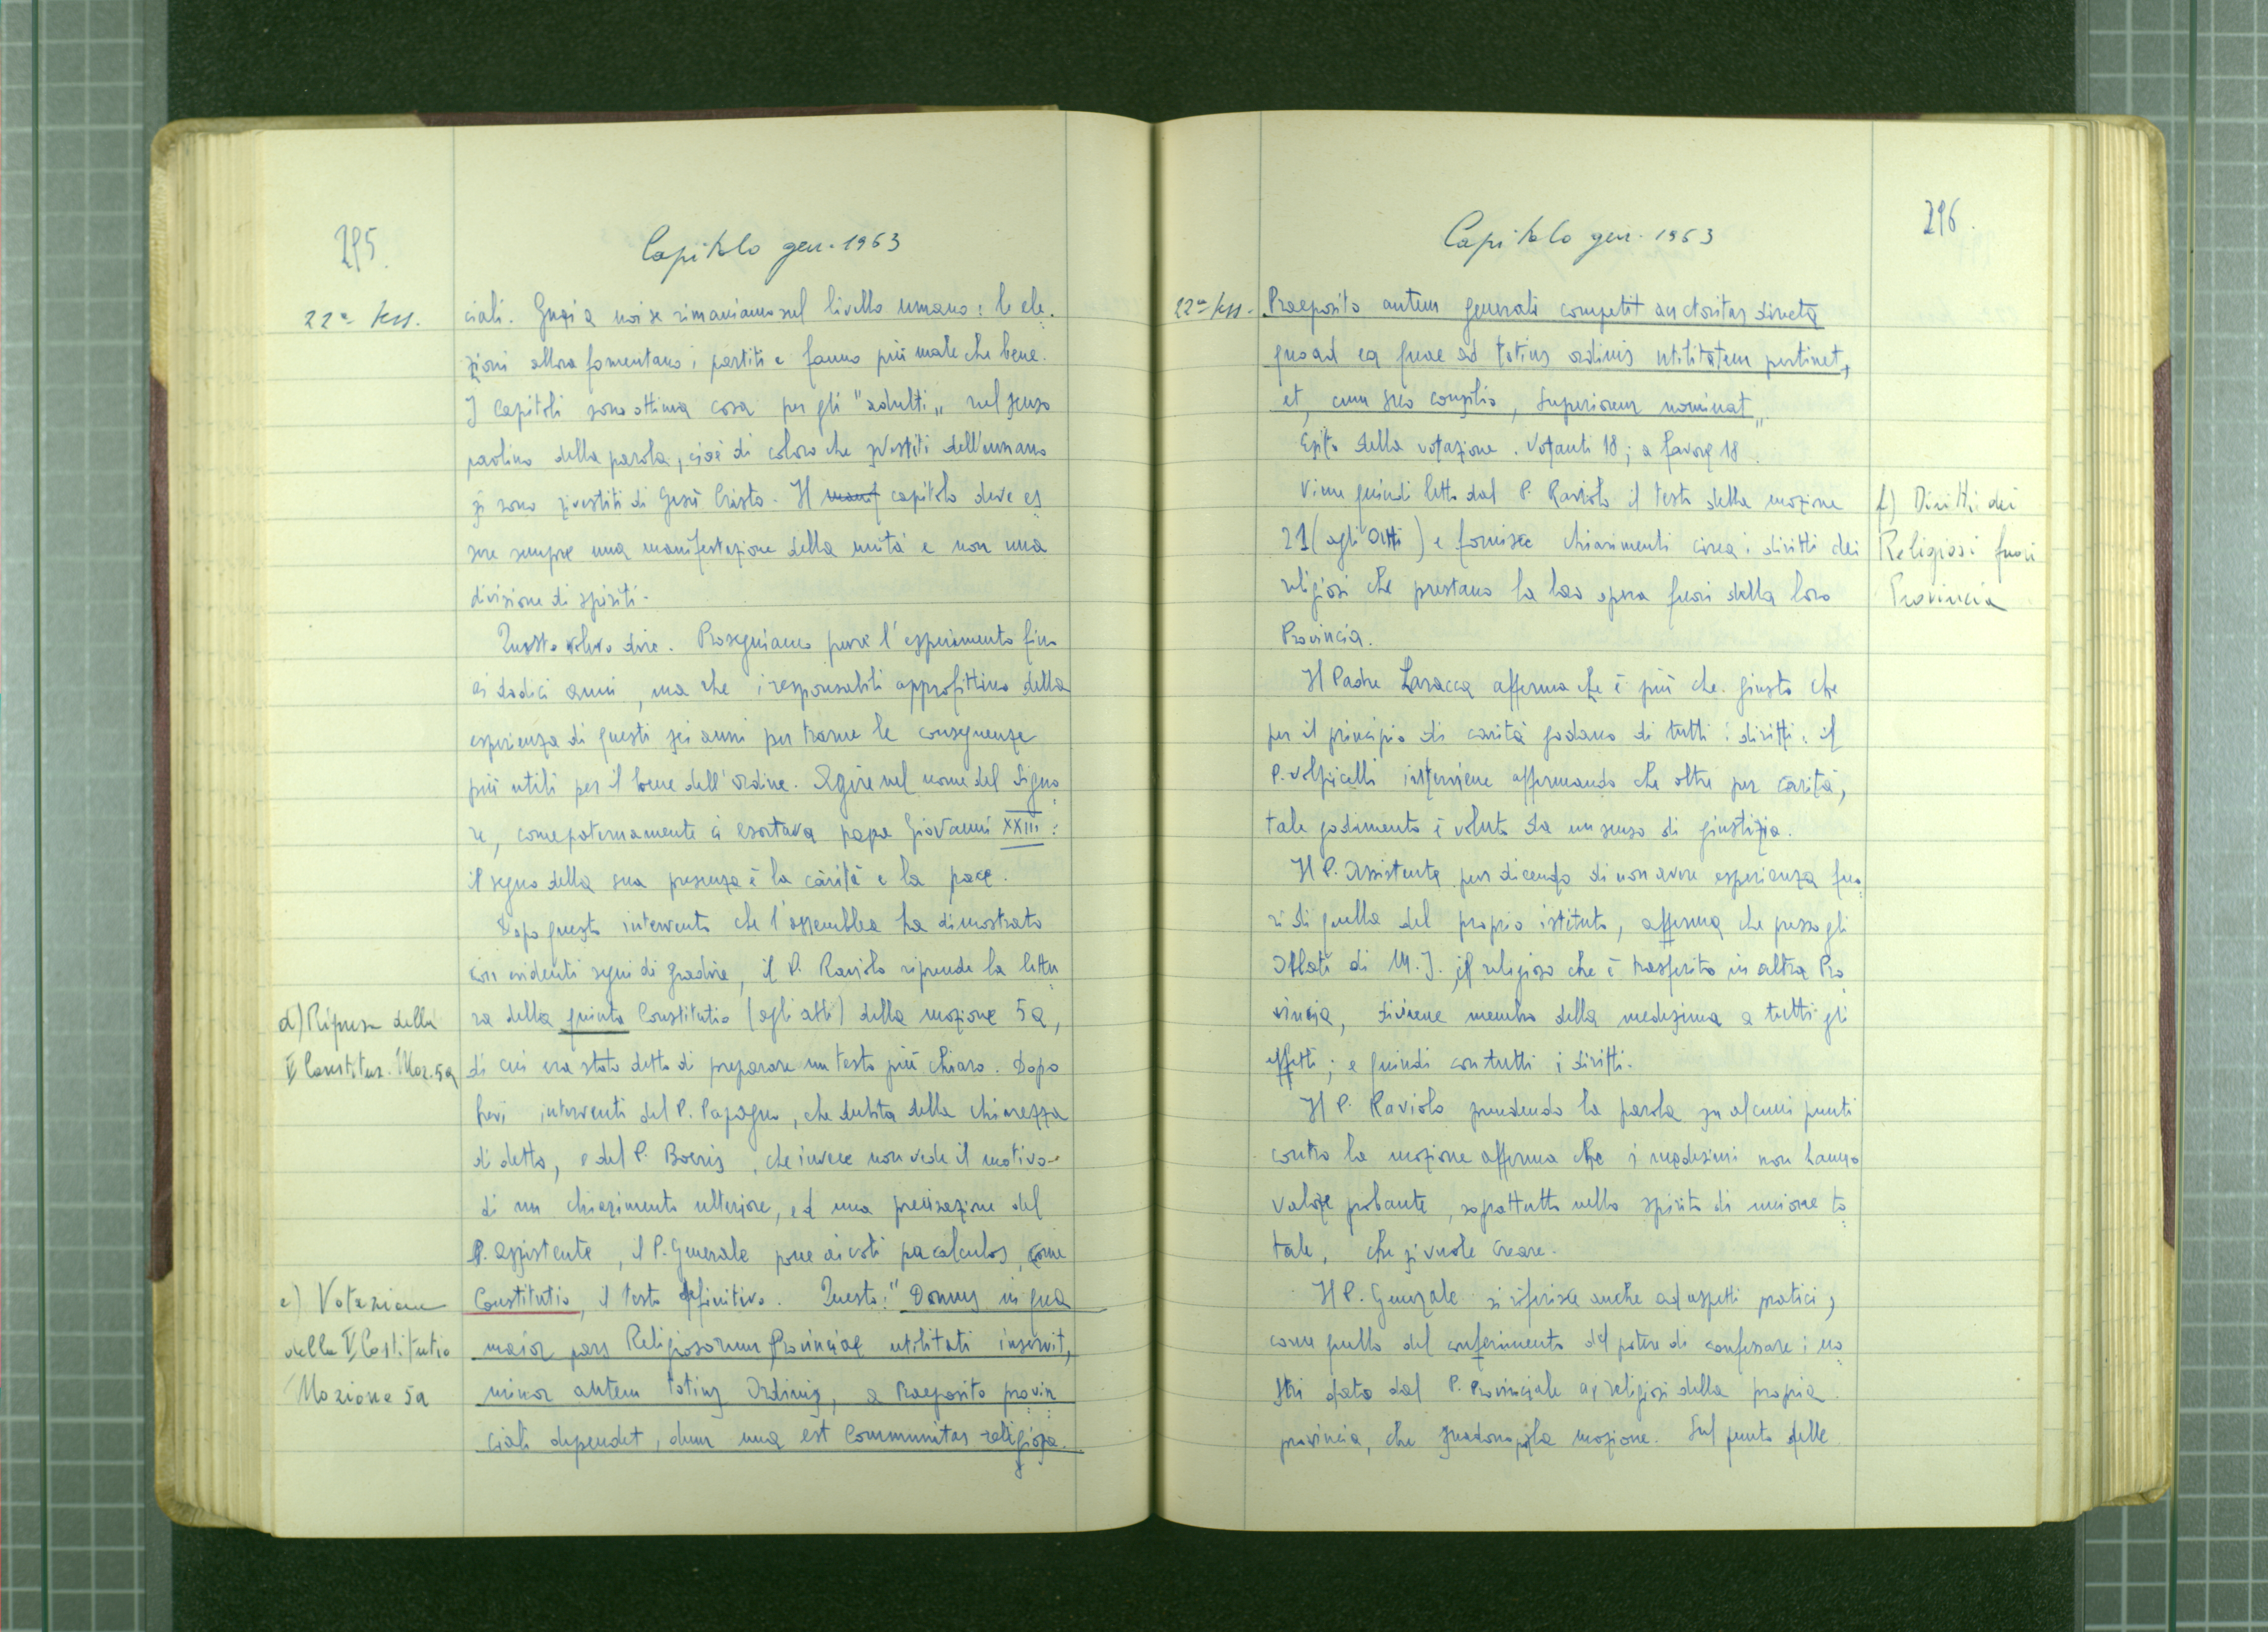 295.
Capitolo gen. 1963
22ª sess.
ciali. Guai a noi se rimaniamo sul livello umano: le ele-
zioni allora fomentano i partiti e fanno più male che bene.
I Capitoli sono ottima cosa per gli "adulti" nel senso
paolino della parola, cioè di coloro che svestiti dell'umano
si sono rivestiti di Gesù Cristo. Il capitolo deve es
sere sempre una manifestazione della unità e non una
divisione di spiriti.
Questo volevo dire. Proseguiamo pure l'esperimento fino
ai dodici anni, ma che i responsabili approfittino della
esperienza di questi sei anni per trarne le conseguenze
più utili per il bene dell'Ordine. Agire nel nome del Signo
re, come paternamente ci esortava papa Giovanni XXIII:
il segno della sua presenza è la carità e la pace.
Dopo questo intervento che l'assemblea ha dimostrato
con evidenti segni di gradire, il P. Raviolo riprende la lettu
d) Ripresa della
ra della quinta Constitutio (agli atti) della mozione 5a,
V Constitut. Moz. 5a
di cui era stato detto di preparare un testo più chiaro. Dopo
brevi interventi del P. Papagno, che dubita della chiarezza
di detto, e del P. Boeris, che invece non vede il motivo
di un chiarimento ulteriore, ed una precisazione del
P. Assistente, il P. Generale pone ai voti per calculos, come
e) Votazione
Constitutio, il testo definitivo. Questo: "Domus in qua
della V Costitutio
maior pars Religiosorum Provinciae utilitati inservit,
Mozione 5a
minor autem totius Ordinis, a Praeposito provin
ciali dependet, dum una est Communitas religiosa.
296.
Capitolo gen. 1963
22ª sess.
Praeposito autem generali competit auctoritas directa
quoad ea quae ad totius ordinis utilitatem pertinet,
et, cum suo consilio, Superiorem nominat".
Esito della votazione. Votanti 18; a favore 18.
Viene quindi letto dal P. Raviolo il testo della mozione
f) Diritti dei
21 (agli Atti) e fornisce chiarimenti circa i diritti dei
Religiosi fuori
religiosi che prestano la loro opera fuori della loro
Provincia
Provincia.
Il Padre Laracca afferma che è più che giusto che
per il principio di carità godano di tutti i diritti: il
P. Volpicelli interviene affermando che oltre per carità,
tale godimento è voluto da un senso di giustizia.
Il P. Assistente pur dicendo di non avere esperienza fuo
ri di quella del proprio istituto, afferma che presso gli
Oblati di M. I. il religioso che è trasferito in altra Pro
vincia, diviene membro della medesima a tutti gli
effetti; e quindi con tutti i diritti.
Il P. Raviolo prendendo la parola su alcuni punti
contro la mozione afferma che i medesimi non hanno
valore probante, soprattutto nello spirito di unione to
tale, che si vuole creare.
Il P. Generale si riferisce anche ad aspetti pratici,
come quello del conferimento del potere di confessare i no
stri dato dal P. Provinciale ai religiosi della propria
provincia, che la mozione. Sul punto delle